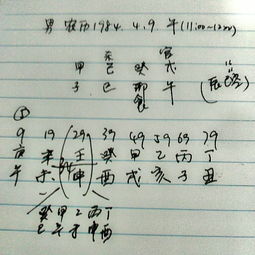 男 农历1984.4.9 午(11:00~12:00)
甲 己 癸 午
子 巳
9 19 29 39 49 59 69 79
庚 辛 壬 癸 甲 乙 丙 丁
午 未 申 酉 戌 亥 子 丑
癸 甲 乙 丙 丁
巳 午 未 申 酉